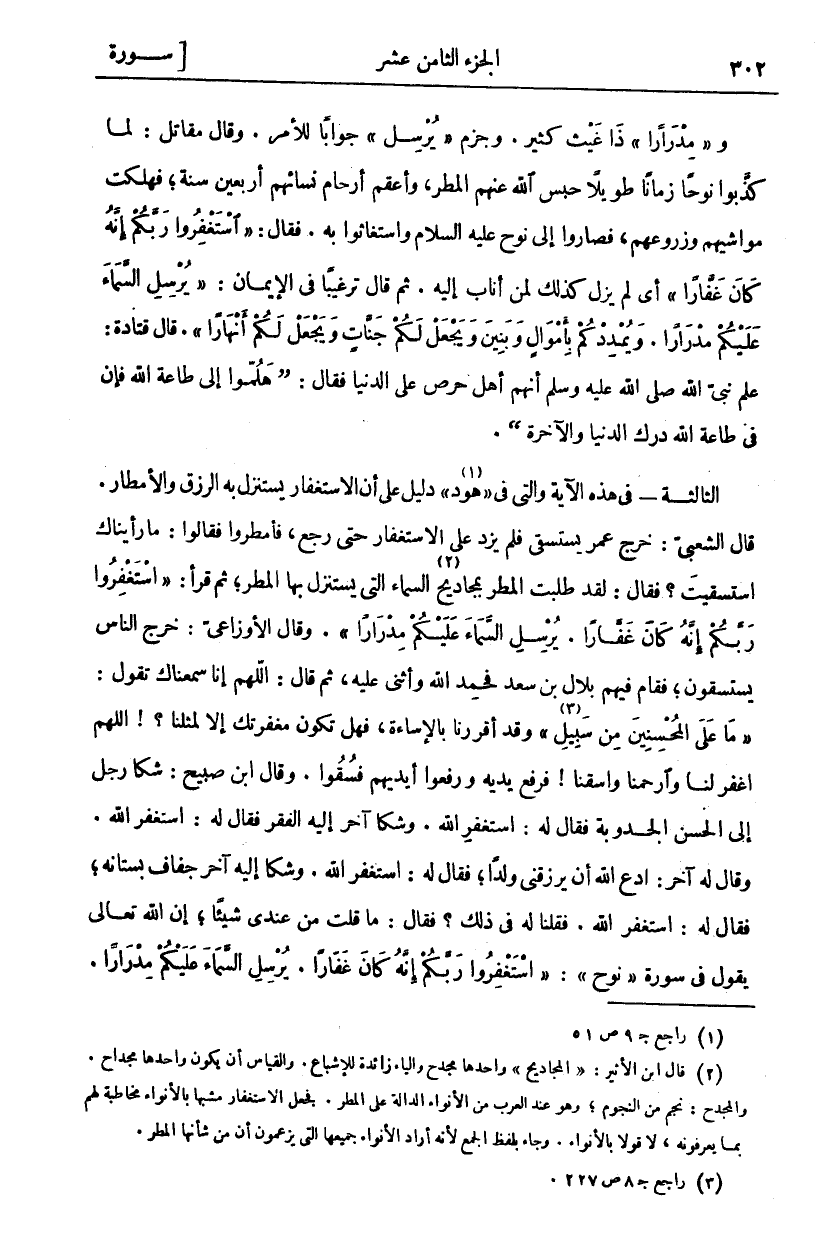 ٣٠٢ الجزء الثامن عشر [ ســـورة
و « مِدْرَارًا » ذَا غَيْث كثير . وجزم « يُرْسِــل » جوابًا للأمر . وقال مقاتل : لمــا
كذَّبوا نوحًا زمانًا طويلًا حبس ٱلله عنهم المطر، وأعقم أرحام نسائهم أربعين سنة؛ فهلكت
مواشيهم وزروعهم، فصاروا إلى نوح عليه السلام واستغاثوا به . فقال: « ٱسْتَغْفِرُوا رَبَّكُمْ إِنَّهُ
كَانَ غَفَّارًا » أى لم يزل كذلك لمن أناب إليه . ثم قال ترغيبًا فى الإيمــان : « يُرْسِلِ السَّمَاءَ
عَلَيْكُمْ مدْرَارًا . وَيُمْدِدْكُمْ بِأَمْوَالٍ وَبَنِينَ وَيَجْعَلْ لَـكُمْ جَنَّاتٍ وَيَجْعَلْ لَـكُمْ أَنْهَارًا » . قال قتادة :
علم نبىّ الله صلى الله عليه وسلم أنهم أهل حرص على الدنيا فقال : ” هَلُمّوا إلى طاعة الله فإن
فى طاعة الله درك الدنيا والآخرة “ .
الثالثــة – فى هذه الآية والتى فى «هُود»(١) دليل على أن الاستغفار يستنزل به الرزق والأمطار .
قال الشعبىّ : خرج عمر يستسقى فلم يزد على الاستغفار حتى رجع، فأمطروا فقالوا : ما رأيناك
استسقيتَ ؟ فقال : لقد طلبت المطر بمجاديح(٢) السماء التى يستنزل بها المطر؛ ثم قرأ : « اسْتَغْفِرُوا
رَبَّـكُمْ إِنَّهُ كَانَ غَفَّـارًا . يُرْسِــلِ السَّمَاءَ عَلَيْـكُمْ مِدْرَارًا » . وقال الأوزاعىّ : خرج الناس
يستسقون؛ فقام فيهم بلال بن سعد فحمد الله وأثنى عليه، ثم قال : اللّهم إنا سمعناك تقول :
« مَا عَلَى الْمُحْسِنِينَ مِن سَبِيلٍ »(٣) وقد أقررنا بالإساءة، فهل تكون مغفرتك إلا لمثلنا ؟ ! اللهم
اغفر لنــا وٱرحمنا واسقنا ! فرفع يديه ورفعوا أيديهم فسُقُوا . وقال ابن صبيح : شكا رجل
إلى الحسن الجــدوبة فقال له : استغفرِ الله . وشكا آخر إليه الفقر فقال له : استغفر الله .
وقال له آخر: ادع الله أن يرزقنى ولدًا؛ فقال له : استغفر الله . وشكا إليه آخر جفاف بستانه؛
فقال له : استغفر الله . فقلنا له فى ذلك ؟ فقال : ما قلت من عندى شيئًا ؛ إن الله تعــالى
يقول فى سورة « نوح » : « اسْتَغْفِرُوا رَبَّكُمْ إِنَّهُ كَانَ غَفَّارًا . يُرْسِلِ السَّمَاءَ عَلَيْكُمْ مِدْرَارًا .
(١) راجع جـ ٩ ص ٥١
(٢) قال ابن الأثير : « المجاديح » واحدها مجدح والياء زائدة للإشباع . والقياس أن يكون واحدها مجداح .
والمجدح : نجم من النجوم ؛ وهو عند العرب من الأنواء الدالة على المطر . فجعل الاستغفار مشبها بالأنواء مخاطبة لهم
بمــا يعرفونه ، لا قولا بالأنواء . وجاء بلفظ الجمع لأنه أراد الأنواء جميعها التى يزعمون أن من شأنها المطر .
(٣) راجع جـ ٨ ص ٢٢٧ .